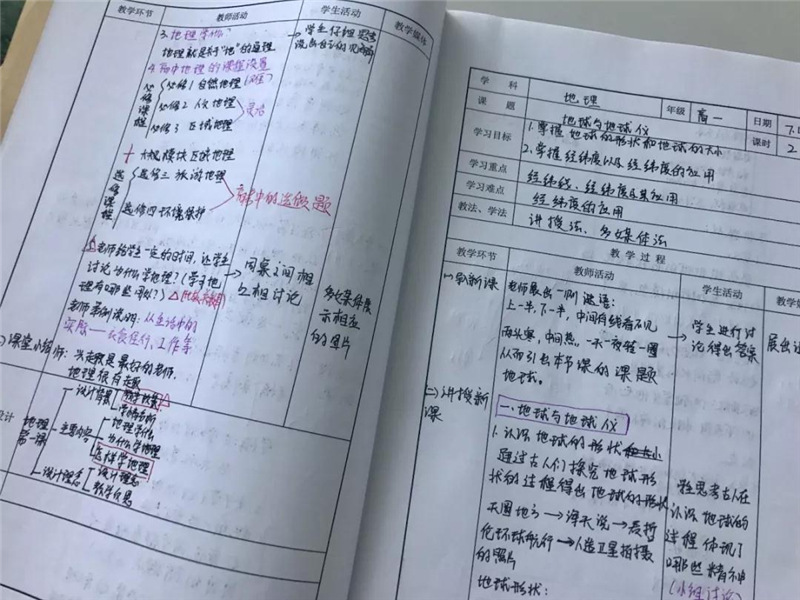 教学环节 教师活动 学生活动 教学媒体
3. 地理学什么
地理就是关于"地"的道理
4. 高中地理的课程设置
必修课程
必修1 自然地理
必修2 人文地理
必修3 区域地理
选修课程
选修三 旅游地理
选修四 环境保护
高考中的选做题
学生仔细思考
老师给学生一定的时间,让学生
讨论为什么学地理?(学习地
理有哪些用处?)
同桌之间相
互相讨论
老师举例说明:从生活中的
衣食住行、工作等
多媒体展
示相应
的图片
课堂小结
兴趣是最好的老师.
地理很有趣
设计
地理第一课
设计背景
学情分析
主要内容
地理学什么
为什么学地理
怎样学地理
设计理念
设计理念
教学反思
学 科 地理 年级 高一 日期
课 题 地球与地球仪 课时 2
学习目标 1.掌握地球的形状和地球的大小
2.掌握经纬度以及经纬度的应用
学习重点 经纬线、经纬度及其应用
学习难点 经纬度的应用
教法、学法 讲授法、多媒体法
教 学 过 程
教学环节 教师活动 学生活动
(一)刷新课
老师展出一则谜语:
上一半,下一半,中间有线看不见
两头寒,中间热,一天一夜转一圈
从而引出本节课的课题
地球。
学生进行讨
论得出答案
(二)讲授新
课
一.地球与地球仪
1.认识地球的形状和大小
通过古人们探究地球形
状的过程得出地球的形状
天圆地方→浑天说→麦哲
伦环球航行→人造卫星拍摄
的照片
地球形状:
思考古人在
认识地球的
过程体现了
哪些精神
(小组讨论)